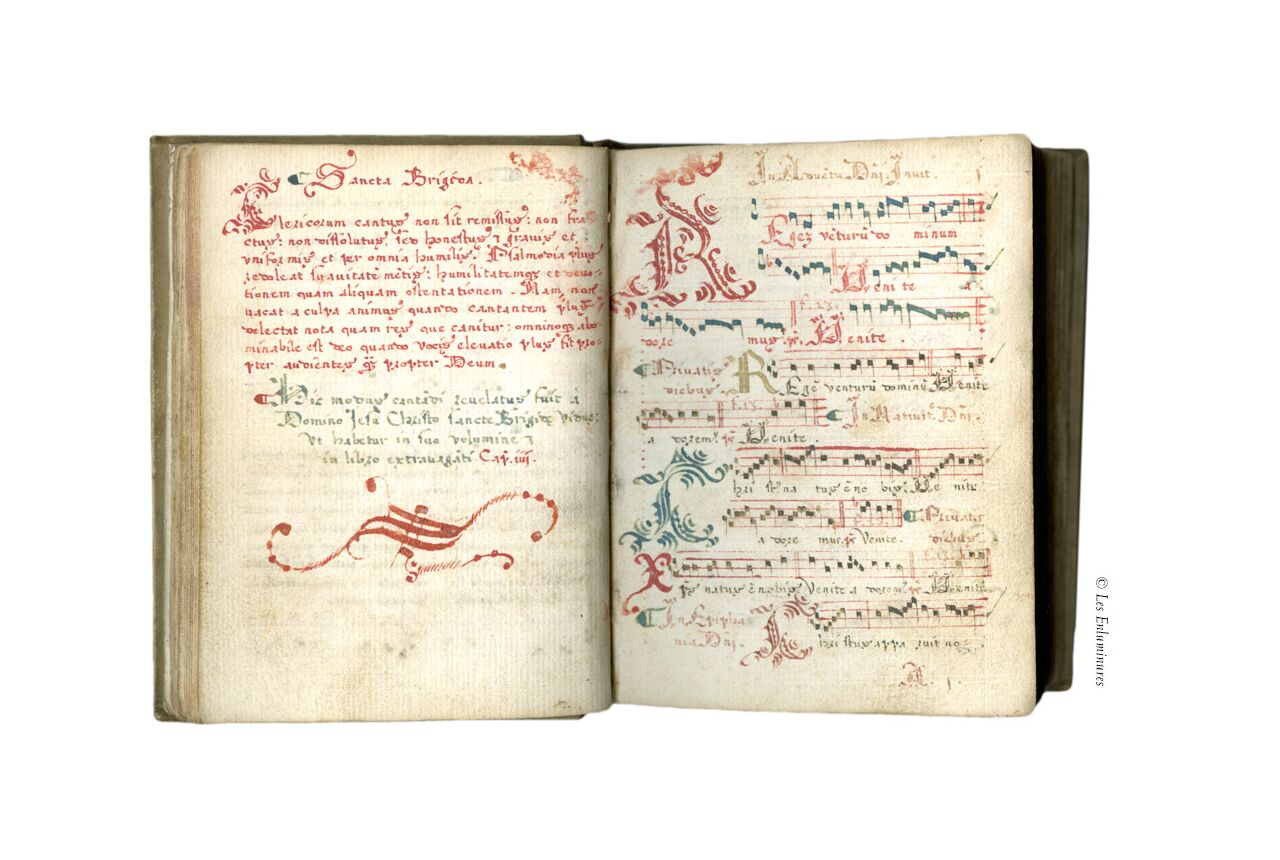 Sancta Brigida.
Clericorum cantus non sit remissus: non fra-
ctus: non dissolutus, sed honestus & gravis et
uniformis et per omnia humilis. Psalmodia plus
redoleat suavitatē mētis: humilitatemqz et devo-
tionem quam aliquam ostentationem. Nam non
vacat a culpa animus quando cantantem plus
delectat nota quam res que canitur: omninoqz abo
minabile est deo quando vocis elevatio plus fit pro-
pter audientes qz propter Deum.
Hic modus cantādi revelatus fuit a
Domino Jesu Christo sancte Brigide vidue:
Ut habetur in suo volumine &
in libro extravagāti Cap. iiii.
In Advētu Dn̄i Invit.
Regez vēturū do minum
Veni te
a dore mus. ps. Venite.
Privatis
diebus.
Regē venturū dominū Venite
In Nativit. Dn̄i.
a dorem9 ps Venite.
Chri st9 na tus ē no bis. Ve nite
Privatis
a dore mus. ps Venite. diebus.
Xps natus ē nobis. Venite a dorem9. ps Venite
In Epipha
nia Dn̄i.
Christus appa ruit no-
A. 1.
© Les Enluminures